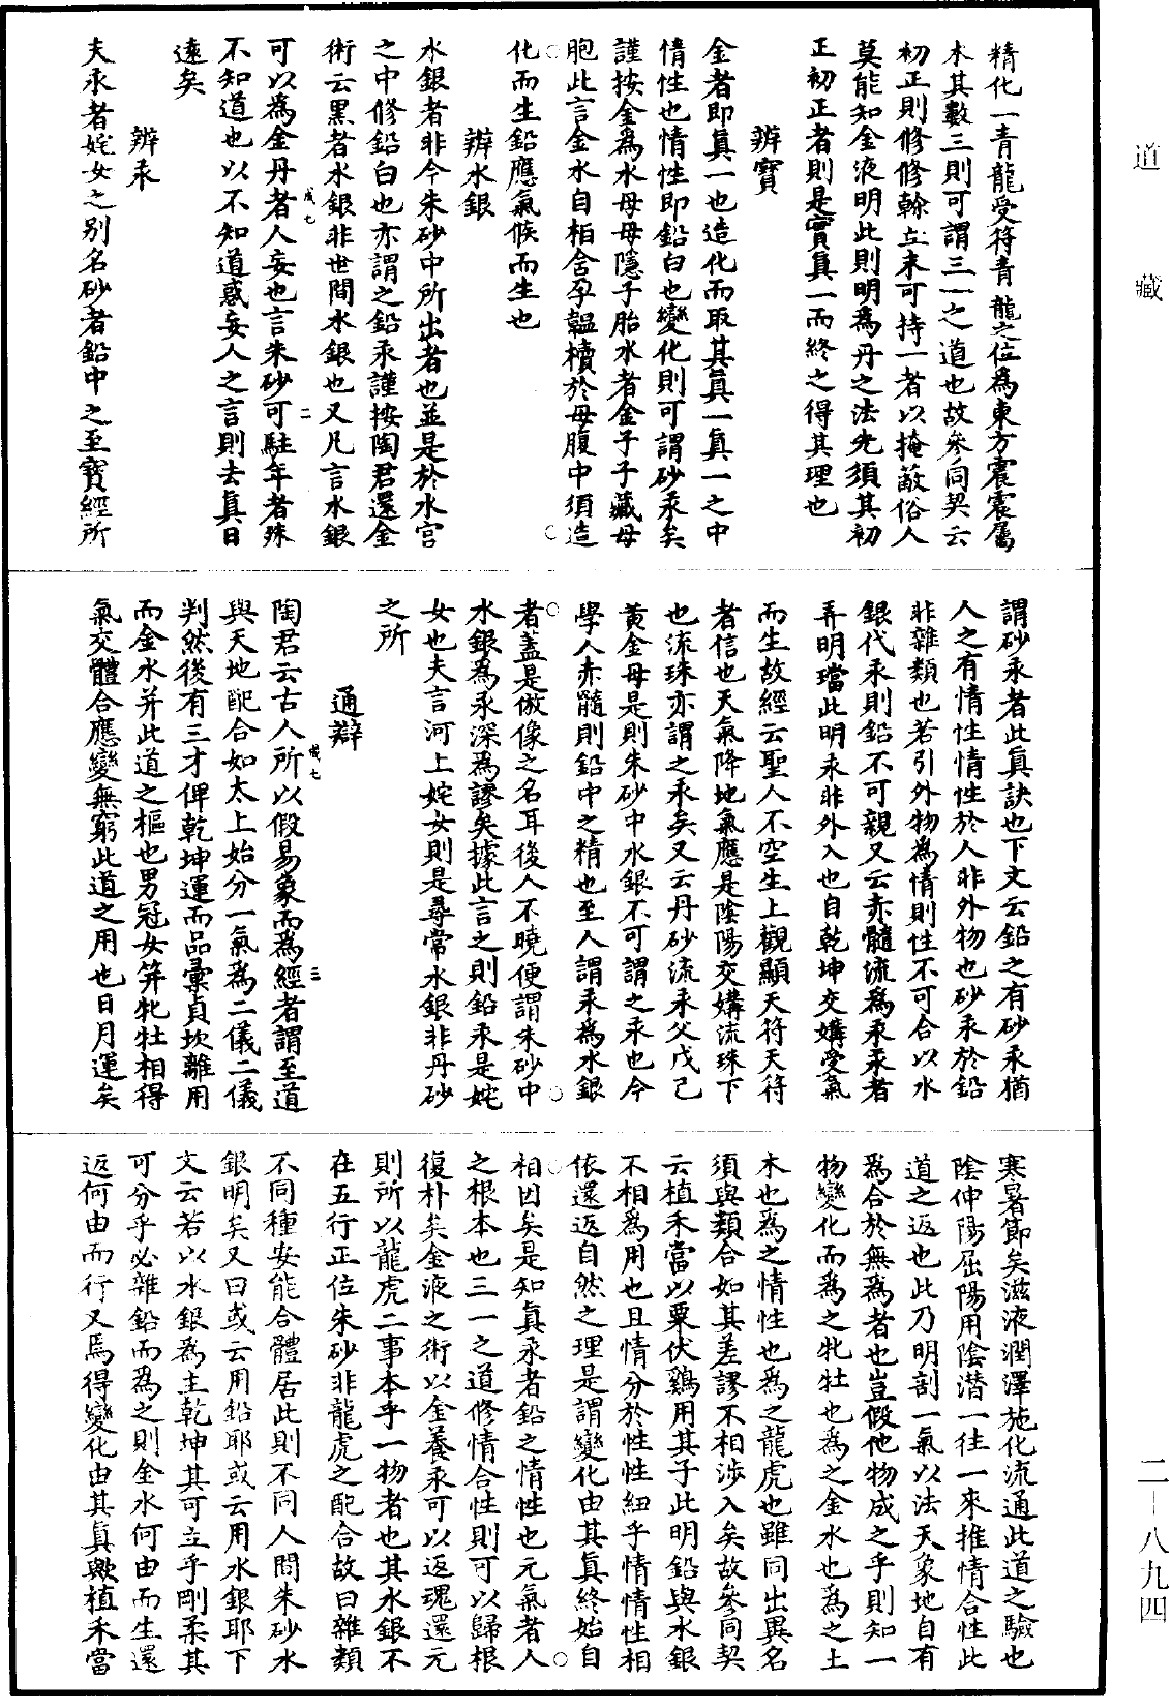 道藏
二—八九四
精化一青龍受符青龍之位為東方震震屬
木其數三則可謂三一之道也故參同契云
初正則修修翰立末可持一者以掩蔽俗人
莫能知金液明此則明為丹之法先須其初
正初正者則是實真一而終之得其理也
辨寶
金者即真一也造化而取其真一真一之中
情性也情性即鉛白也變化則可謂砂汞矣
謹按金為水母母隱子胎水者金子子藏母
胞此言金水自相含孕韞櫝於母腹中須造
化而生鉛應氣候而生也
辨水銀
水銀者非今朱砂中所出者也並是於水宮
之中修鉛白也亦謂之鉛汞謹按陶君還金
術云黑者水銀非世間水銀也又凡言水銀
可以為金丹者人妄也言朱砂可駐年者殊
不知道也以不知道惑妄人之言則去真日
遠矣
辨汞
夫汞者姹女之別名砂者鉛中之至寶經所
咸七
二
謂砂汞者此真訣也下文云鉛之有砂汞猶
人之有情性情性於人非外物也砂汞於鉛
非雜類也若引外物為情則性不可合以水
銀代汞則鉛不可親又云赤髓流為汞汞者
弄明璫此明汞非外入也自乾坤交媾受氣
而生故經云聖人不空生上觀顯天符天符
者信也天氣降地氣應是陰陽交媾流珠下
也流珠亦謂之汞矣又云丹砂流汞父戊己
黃金母是則朱砂中水銀不可謂之汞也今
學人赤髓則鉛中之精也至人謂汞為水銀
者蓋是倣像之名耳後人不曉便謂朱砂中
水銀為汞深為謬矣據此言之則鉛汞是姹
女也夫言河上姹女則是尋常水銀非丹砂
之所
通辯
陶君云古人所以假易象而為經者謂至道
與天地配合如太上始分一氣為二儀二儀
判然後有三才俾乾坤運而品彙貞坎離用
而金水并此道之樞也男冠女筓牝牡相得
氣交體合應變無窮此道之用也日月運矣
咸七
三
寒暑節矣滋液潤澤施化流通此道之驗也
陰伸陽屈陽用陰潛一往一來推情合性此
道之返也此乃明剖一氣以法天象地自有
為合於無為者也豈假他物成之乎則知一
物變化而為之牝牡也為之金水也為之土
木也為之情性也為之龍虎也雖同出異名
須與類合如其差謬不相涉入矣故參同契
云植禾當以粟伏鷄用其子此明鉛與水銀
不相為用也且情分於性性紐乎情情性相
依還返自然之理是謂變化由其真終始自
相因矣是知真汞者鉛之情性也元氣者人
之根本也三一之道修情合性則可以歸根
復朴矣金液之術以金養汞可以返魂還元
則所以龍虎二事本乎一物者也其水銀不
在五行正位朱砂非龍虎之配合故曰雜類
不同種安能合體居此則不同人問朱砂水
銀明矣又曰或云用鉛耶或云用水銀耶下
文云若以水銀為主乾坤其可立乎剛柔其
可分乎必雜鉛而為之則金水何由而生還
返何由而行又焉得變化由其真歟植禾當